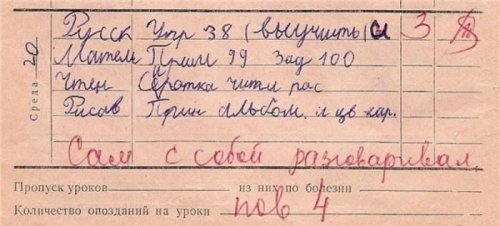 Среда 20
Русск Упр 38 (выучить) и 3
Матем Прим 99 Зад 100
Чтен Серотка читл рас
Рисов Прин альбом. и цв кар.
Сам с собой разговаривал
Пропуск уроков из них по болезни
Количество опозданий на уроки
пов 4